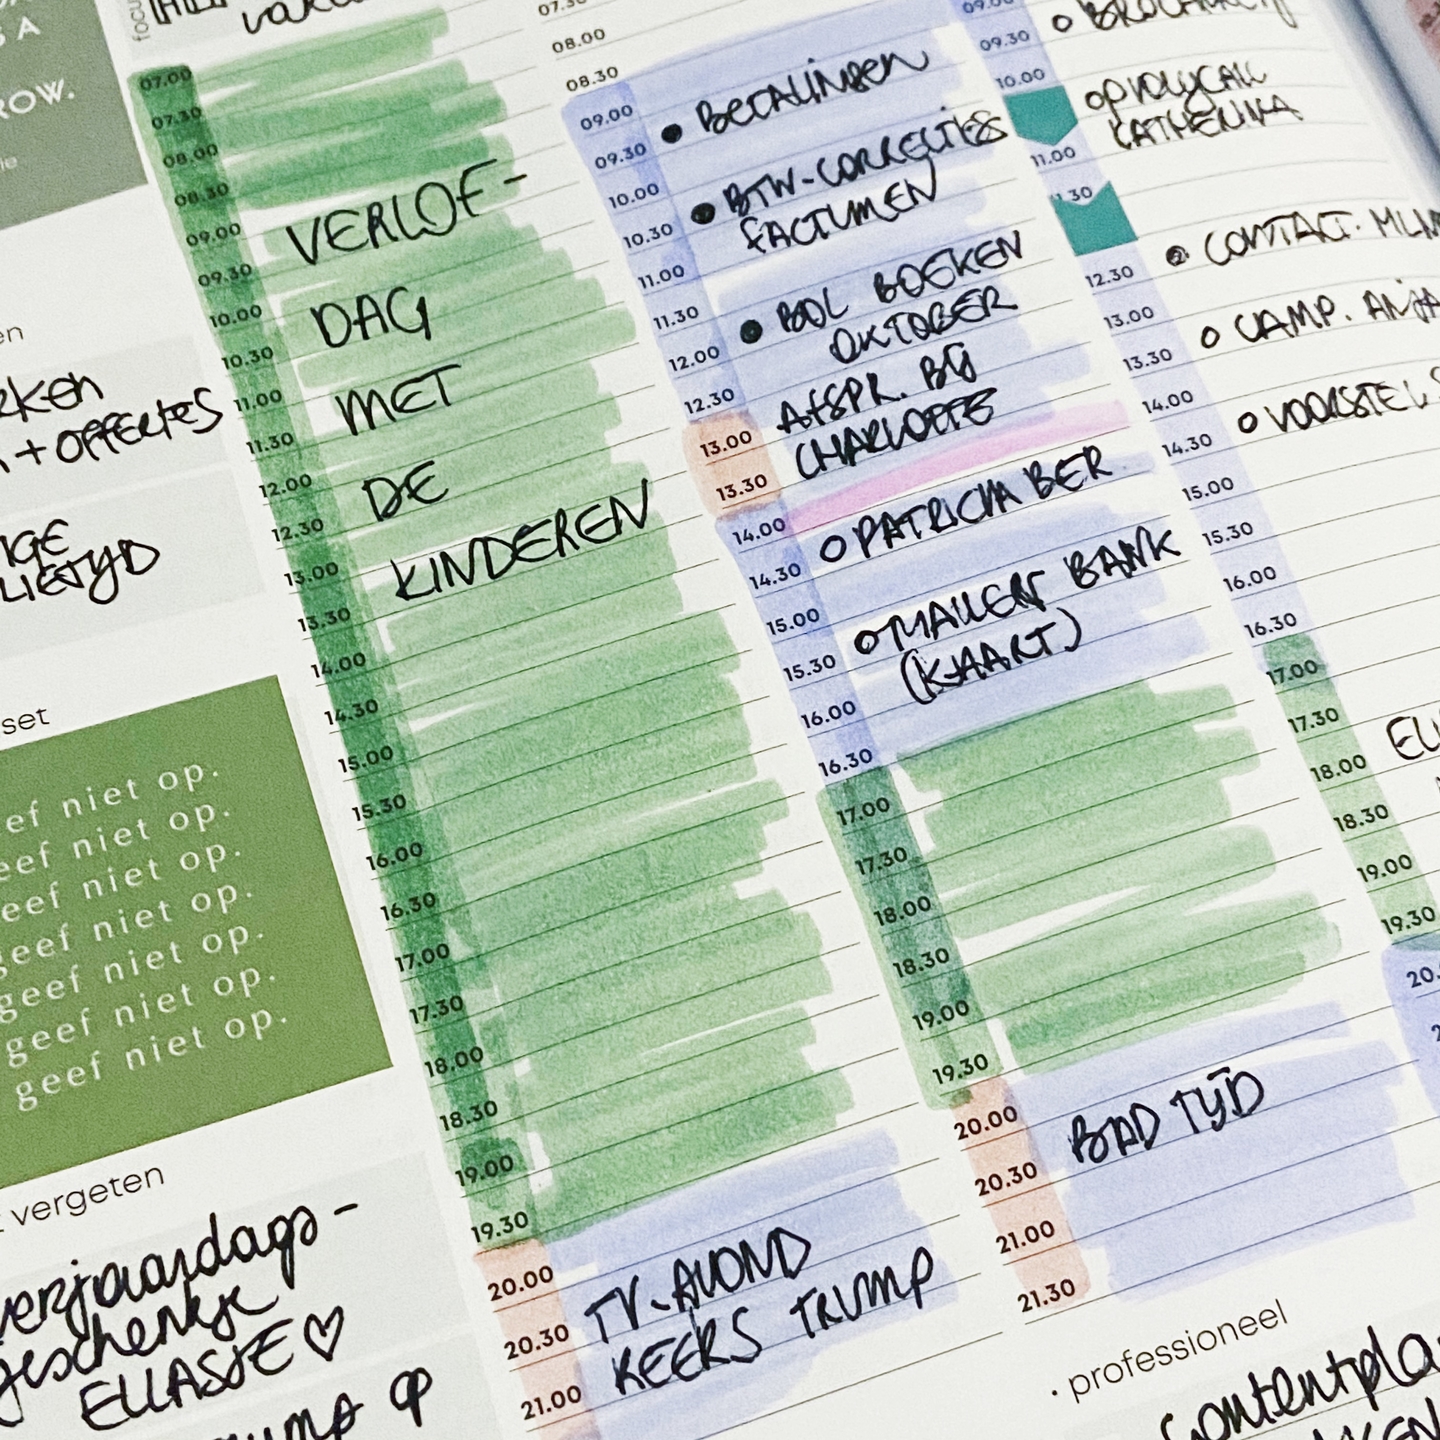 S A
ROW.
+ OFFERTES
set
geef niet op.
geef niet op.
geef niet op.
geef niet op.
geef niet op.
geef niet op.
geef niet op.
vergeten
verjaardags-
geschenkje
ELLASJE ♡
op
07.00
07.30
08.00
08.30
09.00
09.30
10.00
10.30
11.00
11.30
12.00
12.30
13.00
13.30
14.00
14.30
15.00
15.30
16.00
16.30
17.00
17.30
18.00
18.30
19.00
19.30
20.00
20.30
21.00
VERLOF-
DAG
MET
DE
KINDEREN
TV-AVOND
KEERS TRUMP
07.30
08.00
08.30
09.00
09.30
10.00
10.30
11.00
11.30
12.00
12.30
13.00
13.30
14.00
14.30
15.00
15.30
16.00
16.30
17.00
17.30
18.00
18.30
19.00
19.30
20.00
20.30
21.00
21.30
• BETALINGEN
• BTW-CORRECTIES
FACTUREN
• BOL BOEKEN
OKTOBER
AFSPR. BIJ
CHARLOTTE
O PATRICIA BER
O MAILEN BANK
(KAART)
BAD TIJD
• professioneel
09.00
09.30
10.00
11.00
11.30
12.30
13.00
13.30
14.00
14.30
15.00
15.30
16.00
16.30
17.00
17.30
18.00
18.30
19.00
19.30
O OPVOLGCALL
KATHERINA
• CONTACT.
O CAMP. ANJA
O VOORSTEL